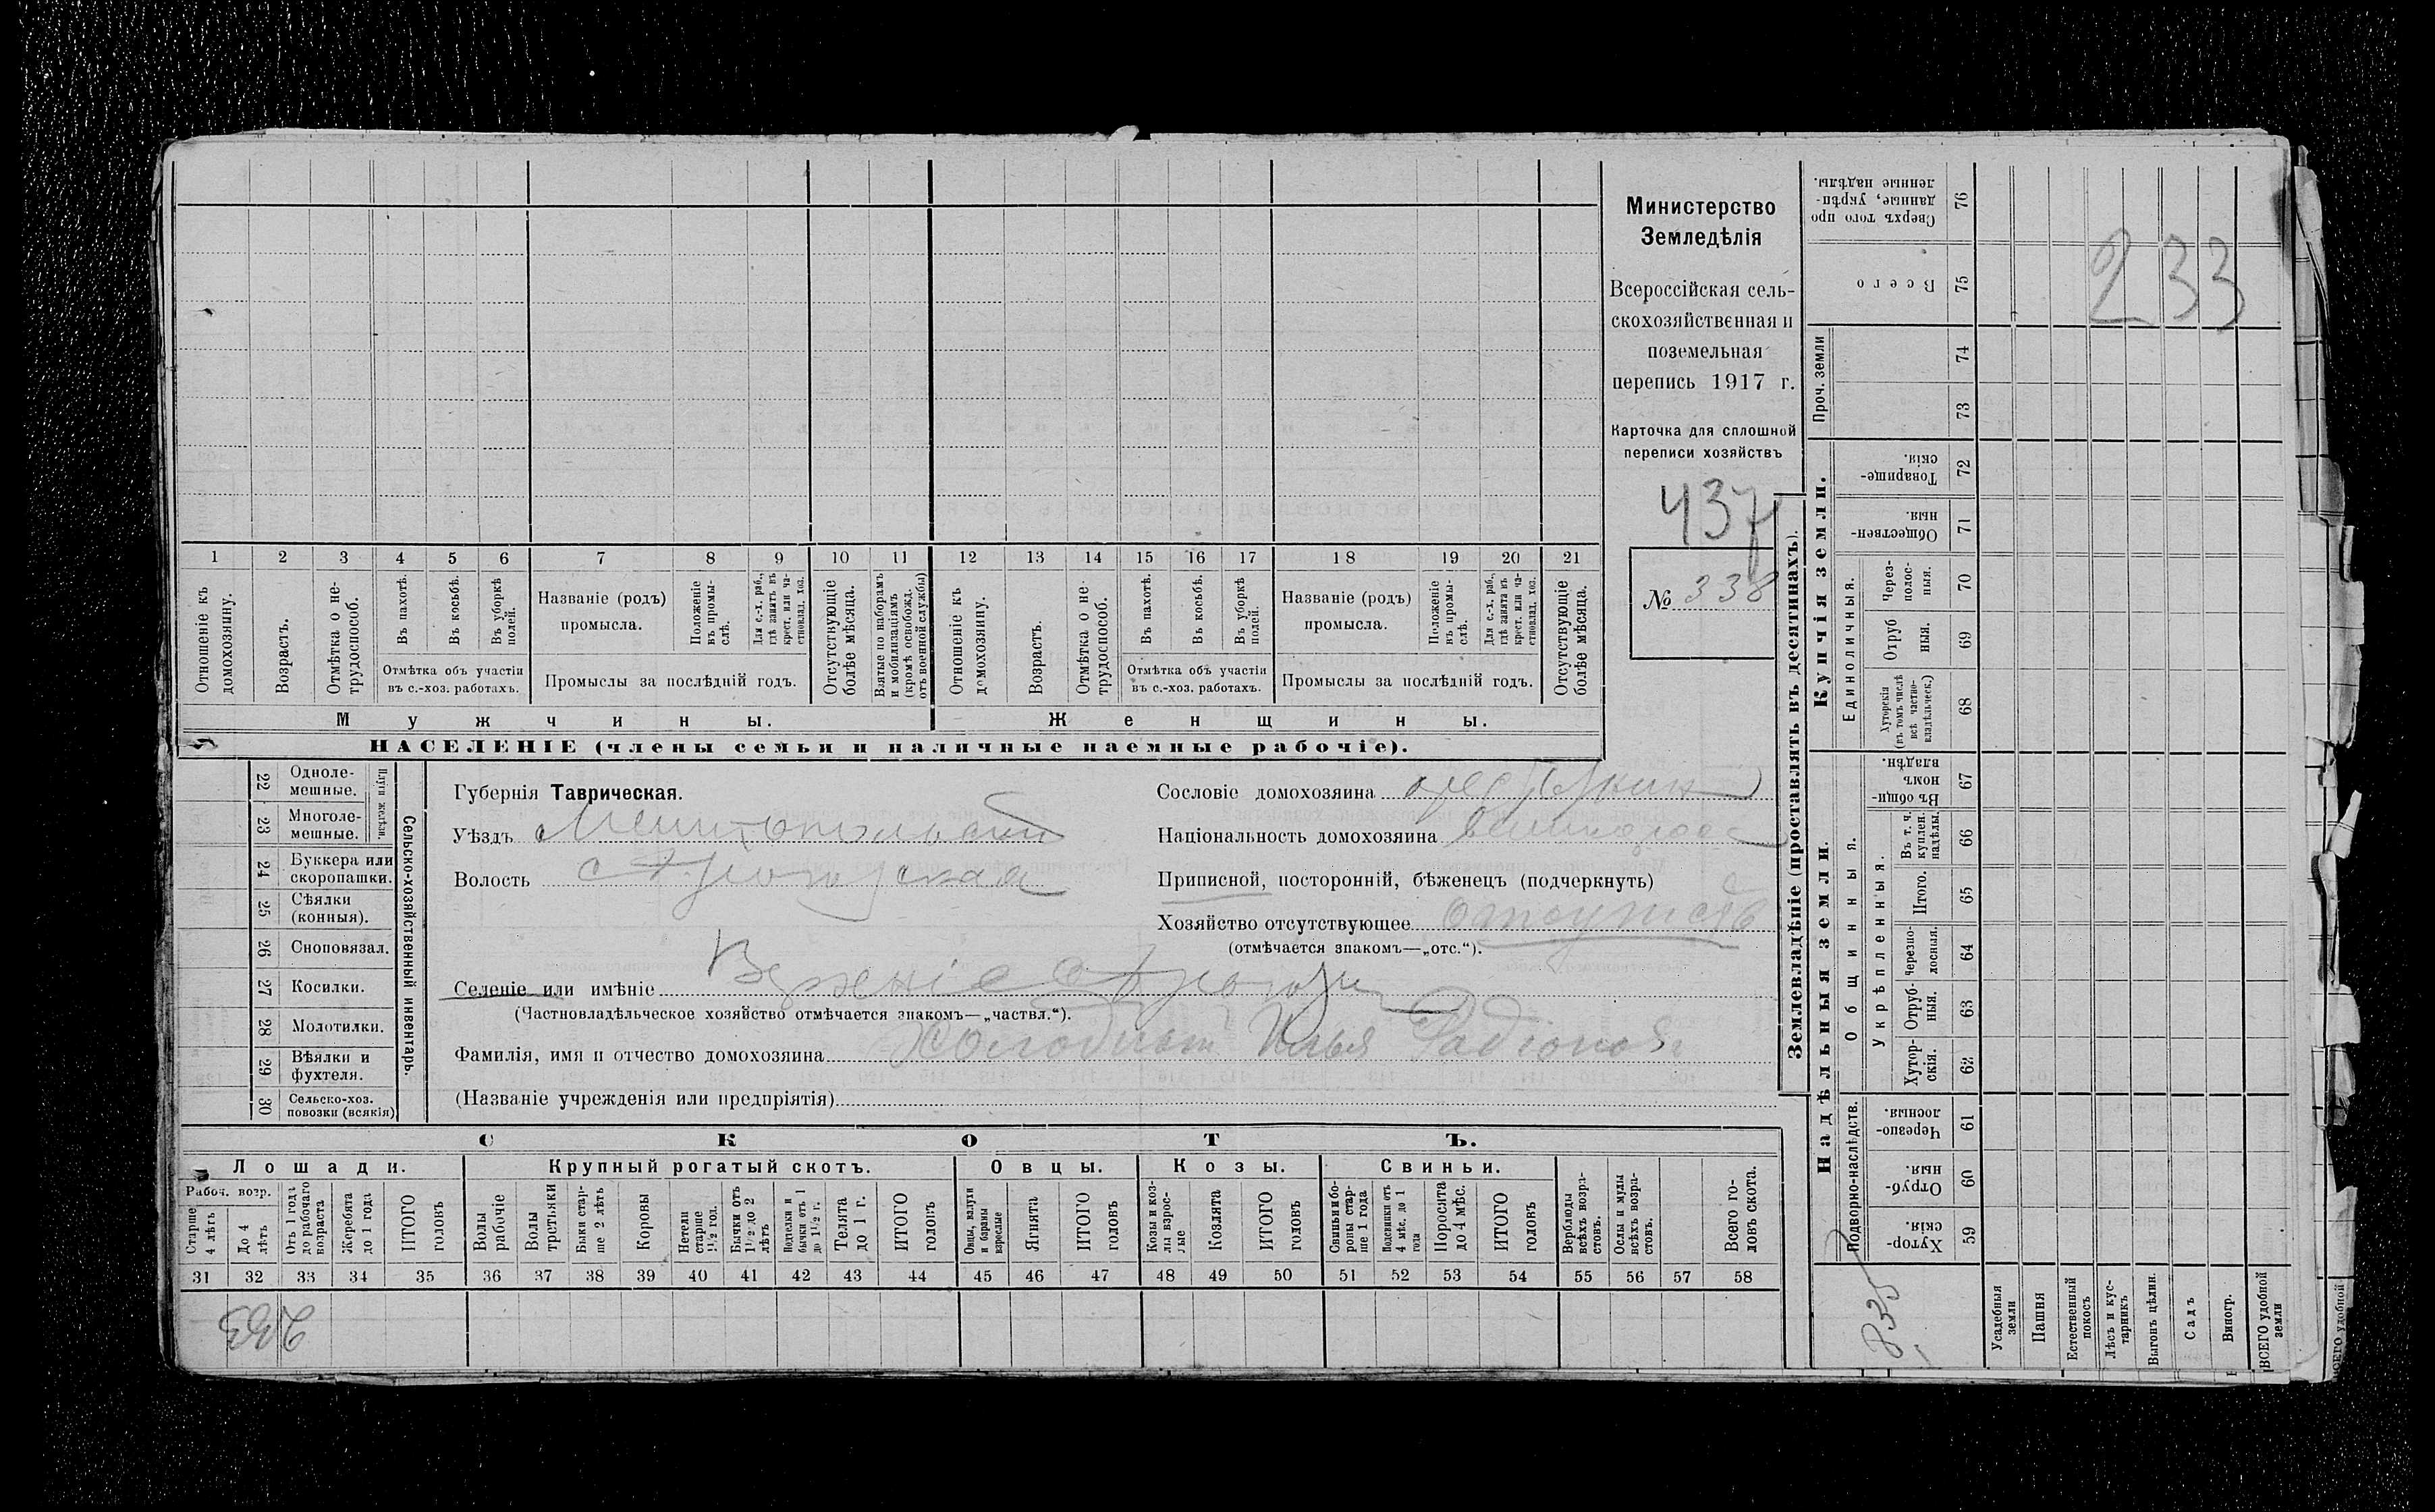 Министерство
Земледѣлія
Всероссійская сель-
скохозяйственная и
поземельная
перепись 1917 г.
Карточка для сплошной
переписи хозяйствъ
437
№ 338
1 2 3 4 5 6 7 8 9 10 11 12 13 14 15 16 17 18 19 20 21
Отношеніе къ домохозяину.
Возрастъ.
Отмѣтка о не-трудоспособ.
Въ пахотѣ.
Въ косьбѣ.
Въ уборкѣ полей.
Отмѣтка объ участіи
въ с.-хоз. работахъ.
Названіе (родъ)
промысла.
Положеніе въ промы-слѣ.
Для с.-х. раб., гдѣ занятъ въ крест. или ча-стновлад. хоз.
Промыслы за послѣдній годъ.
Отсутствующіе болѣе мѣсяца.
Взятые по наборамъ и мобилизаціямъ (кромѣ освобожд. отъ военной службы)
Отношеніе къ домохозяину.
Возрастъ.
Отмѣтка о не-трудоспособ.
Въ пахотѣ.
Въ косьбѣ.
Въ уборкѣ полей.
Отмѣтка объ участіи
въ с.-хоз. работахъ.
Названіе (родъ)
промысла.
Положеніе въ промы-слѣ.
Для с.-х. раб., гдѣ занята въ крест. или ча-стновлад. хоз.
Промыслы за послѣдній годъ.
Отсутствующіе болѣе мѣсяца.
Мужчины.
Женщины.
НАСЕЛЕНІЕ (члены семьи и наличные наемные рабочіе).
Сельско-хозяйственный инвентарь.
Плуги желѣзн.
22 Одноле-мешные.
23 Многоле-мешные.
24 Буккера или скоропашки.
25 Сѣялки (конныя).
26 Сноповязал.
27 Косилки.
28 Молотилки.
29 Вѣялки и фухтеля.
30 Сельско-хоз. повозки (всякія)
Губернія Таврическая.
Уѣздъ Мелитопольскій
Волость
Селеніе или имѣніе
(Частновладѣльческое хозяйство отмѣчается знакомъ—„частвл.“).
Фамилія, имя и отчество домохозяина Илья Радіонов
(Названіе учрежденія или предпріятія)
Сословіе домохозяина
Національность домохозяина великоросс
Приписной, посторонній, бѣженецъ (подчеркнуть)
Хозяйство отсутствующее отсутств
(отмѣчается знакомъ—„отс.“).
СКОТЪ.
Лошади.
Крупный рогатый скотъ.
Овцы.
Козы.
Свиньи.
Рабоч. возр.
Старше 4 лѣтъ
До 4 лѣтъ
Отъ 1 года до рабочаго возраста
Жеребята до 1 года
ИТОГО головъ
Волы рабочіе
Волы третьяки
Быки стар-ше 2 лѣтъ
Коровы
Нетели старше 1½ год.
Бычки отъ 1½ до 2 лѣтъ
Подтелки и бычки отъ 1 до 1½ г.
Телята до 1 г.
ИТОГО головъ
Овцы, валухи и бараны взрослые
Ягнята
ИТОГО головъ
Козы и коз-лы взрос-лые
Козлята
ИТОГО головъ
Свиньи и бо-ровы стар-ше 1 года
Подсвинки отъ 4 мѣс. до 1 года
Поросята до 4 мѣс.
ИТОГО головъ
Верблюды всѣхъ возра-стовъ.
Ослы и мулы всѣхъ возра-стовъ.
Всего го-ловъ скота.
31 32 33 34 35 36 37 38 39 40 41 42 43 44 45 46 47 48 49 50 51 52 53 54 55 56 57 58
233
Землевладѣніе (проставлять въ десятинахъ).
Купчія земли.
Надѣльныя земли.
Проч. земли
Единоличныя.
Общинныя.
Укрѣпленныя.
Подворно-наслѣдств.
Сверхъ того про-данные, укрѣп-ленные надѣлы. 76
Всего 75
74
73
Товарище-скія. 72
Обществен-ныя. 71
Через-полос-ныя. 70
Отруб ныя. 69
Хуторскія (въ томъ числѣ всѣ частно-владѣльческ.) 68
Въ общи-номъ владѣн. 67
Въ т. ч. куплен. надѣлы. 66
Итого. 65
Черезпо-лосныя. 64
Отруб-ныя. 63
Хутор-скія. 62
Черезпо-лосныя. 61
Отруб-ныя. 60
Хутор-скія. 59
233
Усадебныя земли
Пашня
Естественный покосъ
Лѣсъ и кус-тарникъ
Выгонъ цѣлин.
Садъ
Виногр.
ВСЕГО удобной земли
ВСЕГО удобной